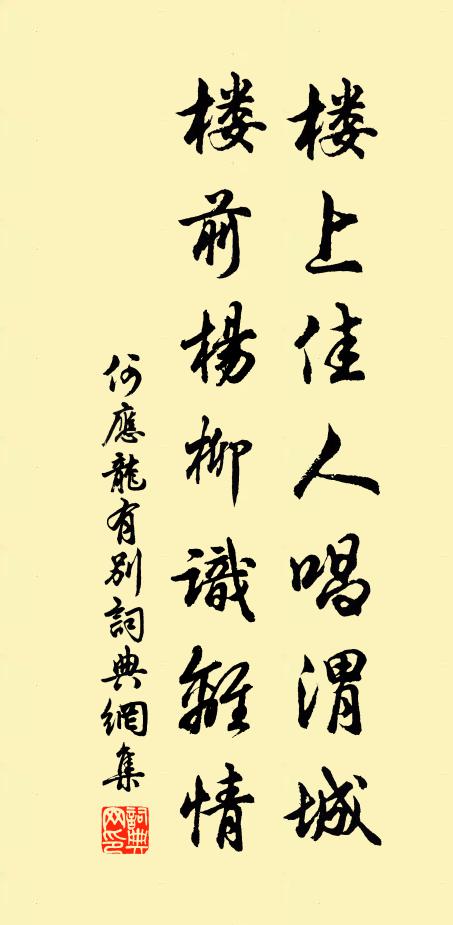 楼上佳人唱渭城
楼前楊柳識離情
何應龍有别詞典網集
詞典网印